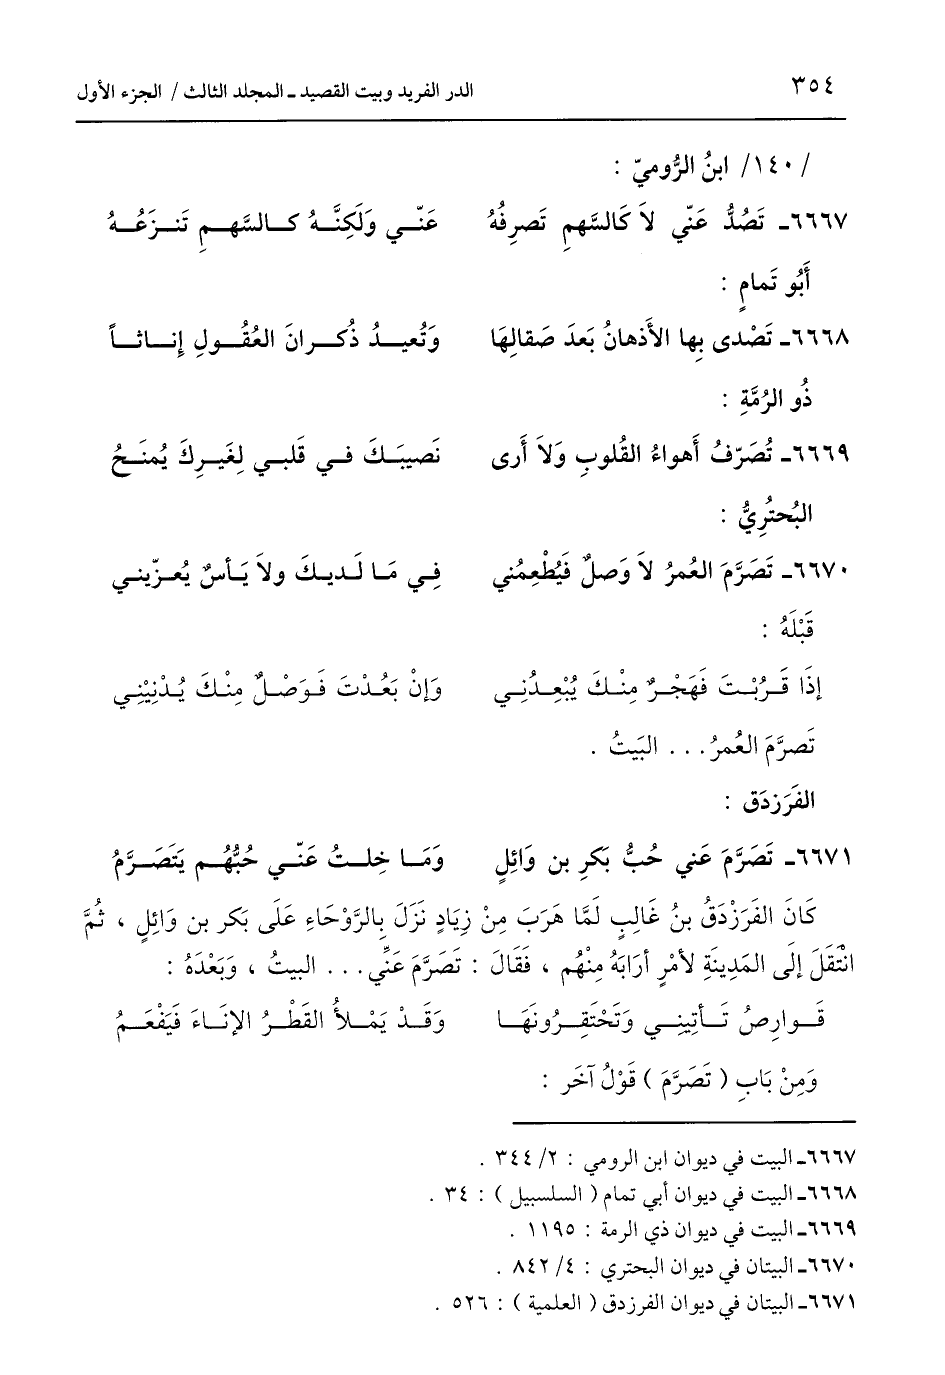 ٣٥٤ الدر الفريد وبيت القصيد ـ المجلد الثالث / الجزء الأول
/ ١٤٠/ ابنُ الرُّوميّ :
٦٦٦٧ـ تَصُدُّ عَنّي لاَ كَالسَّهمِ تَصرِفُهُ عَنّـي وَلَكِنَّـهُ كـالسَّهـمِ تَنـزَعُـهُ
أَبُو تَمامٍ :
٦٦٦٨ـ تَصْدى بِها الأَذهانُ بَعدَ صَقالِهَا وَتُعيـدُ ذُكـرانَ العُقُـولِ إنـاثـاً
ذُو الرُمَّةِ :
٦٦٦٩ـ تُصَرّفُ أَهواءُ القُلوبِ وَلاَ أَرى نَصيبَـكَ فـي قَلبـي لِغَيرِكَ يُمنَـحُ
البُحتُرِيُّ :
٦٦٧٠ـ تَصَرَّمَ العُمرُ لاَ وَصلٌ فَيُطْعِمُني فِـي مَـا لَـديـكَ ولاَ يَـأسٌ يُعـزّينـي
قَبْلَهُ :
إذَا قَـرُبْـتَ فَهَجْـرٌ مِنْـكَ يُبْعِـدُنِـي وَإنْ بَعُدْتَ فَـوَصْـلٌ مِنْـكَ يُـدْنِيْنِـي
تَصرَّمَ العُمرُ. . . البَيتُ .
الفَرَزدَق :
٦٦٧١ـ تَصَرَّمَ عَني حُبُّ بَكرِ بن وَائِلٍ وَمَـا خِلـتُ عَنّـي حُبُّهُـم يَتَصَـرَّمُ
كَانَ الفَرَزْدَقُ بنُ غَالِبٍ لَمَّا هَرَبَ مِنْ زِيَادٍ نَزَلَ بِالرَّوْحَاءِ عَلَى بَكرِ بن وَائِلٍ ، ثُمَّ
انْتَقَلَ إلَى المَدِينَةِ لأمْرٍ أرَابَهُ مِنْهُم ، فَقَالَ : تَصَرَّمَ عَنِّي. . . البيتُ ، وَبَعْدَهُ :
قَـوارِصُ تَـأتِينِـي وَتَحْتَقِـرُونَهَـا وَقَـدْ يَمْـلأُ القَطْـرُ الإنَـاءَ فَيَفْعَـمُ
وَمِنْ بَابِ ( تَصَرَّمَ ) قَوْلُ آخَر :
٦٦٦٧ـ البيت في ديوان ابن الرومي : ٢/ ٣٤٤ .
٦٦٦٨ـ البيت في ديوان أبي تمام ( السلسبيل ) : ٣٤ .
٦٦٦٩ـ البيت في ديوان ذي الرمة : ١١٩٥ .
٦٦٧٠ـ البيتان في ديوان البحتري : ٤/ ٨٤٢ .
٦٦٧١ـ البيتان في ديوان الفرزدق ( العلمية ) : ٥٢٦ .